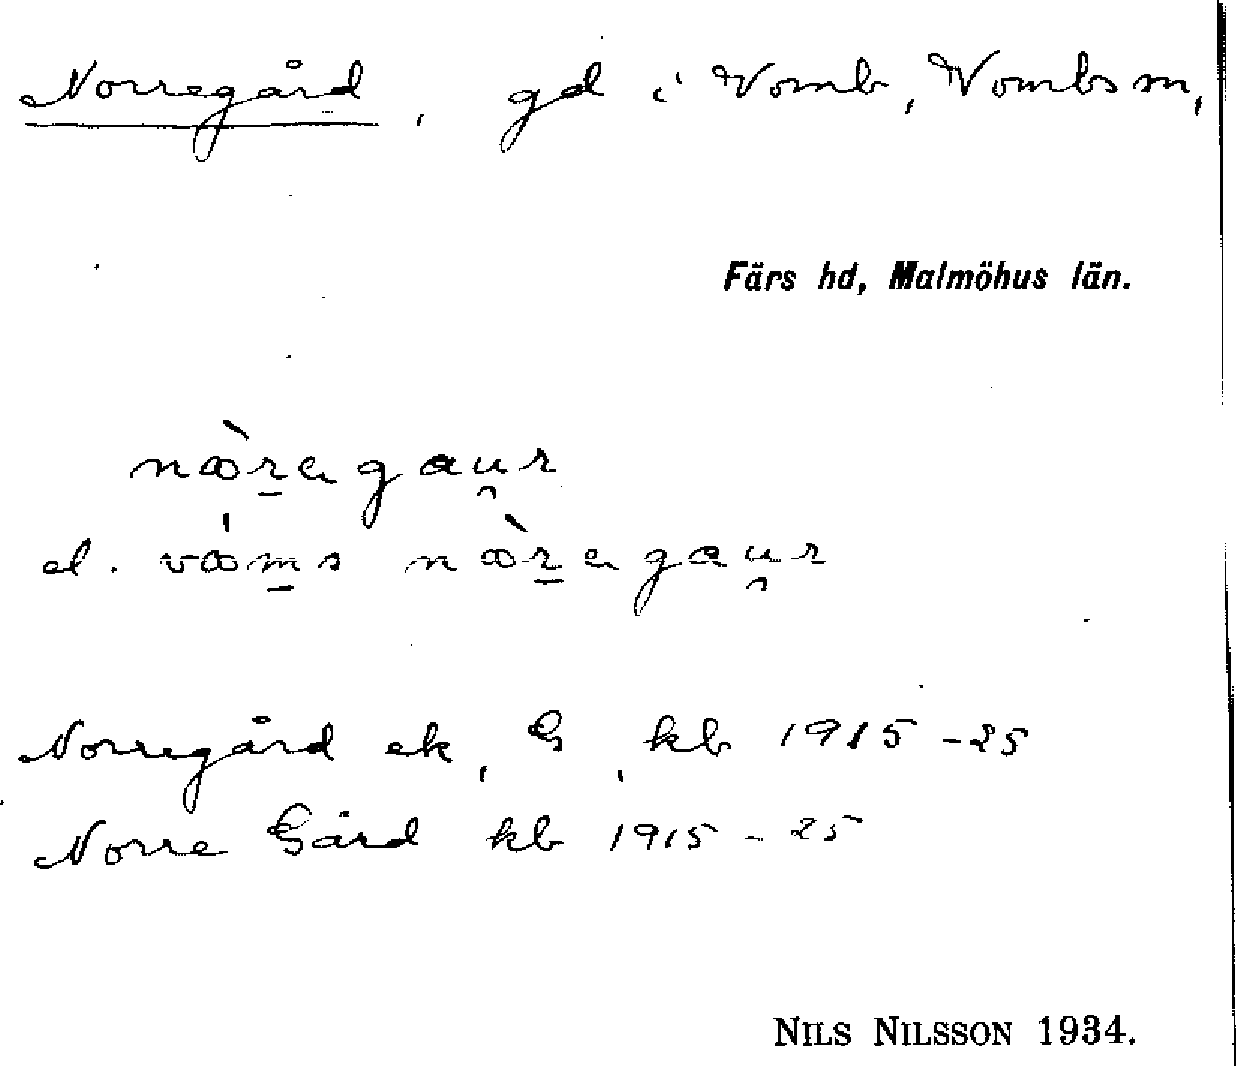 Norregård, gd i Vomb, Vombs sn,
Färs hd, Malmöhus län.
nꝏ̀ra gau̯r
el. vꝏ́ms nꝏ̀ra gau̯r
Norregård ek, G, kb 1915-25
Norre Gård kb 1915-25
NILS NILSSON 1934.